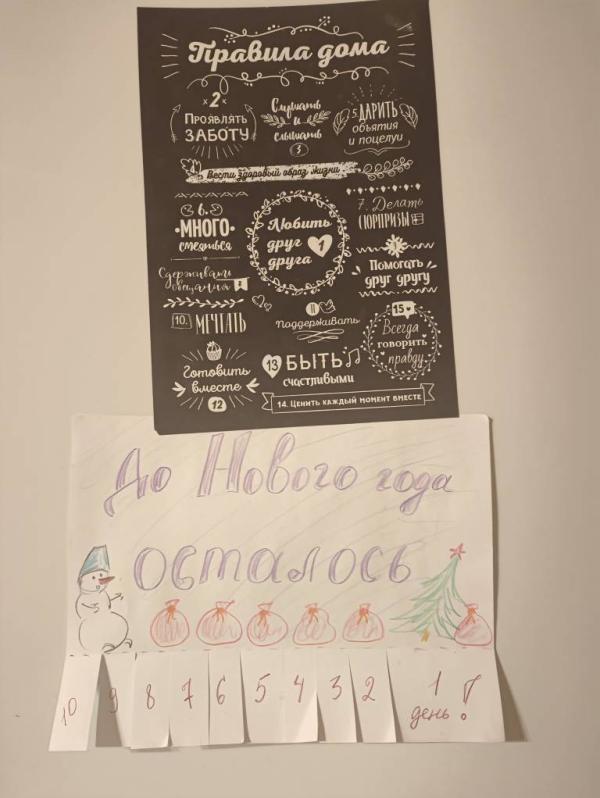 Правила дома
2
ПРОЯВЛЯТЬ
ЗАБОТУ
Слушать
и
слышать
3
5 ДАРИТЬ
объятия
и поцелуи
4
Вести здоровый образ жизни
6.
МНОГО
смеяться
Любить
друг
друга
1
7. Делать
СЮРПРИЗЫ
Сдерживать
обещания
Помогать
друг другу
10.
МЕЧТАТЬ
11
поддерживать
15
Всегда
говорить
правду
Готовить
вместе
12
13 БЫТЬ
счастливыми
14. ЦЕНИТЬ КАЖДЫЙ МОМЕНТ ВМЕСТЕ
До Нового года
осталось
10 9 8 7 6 5 4 3 2 1
день!